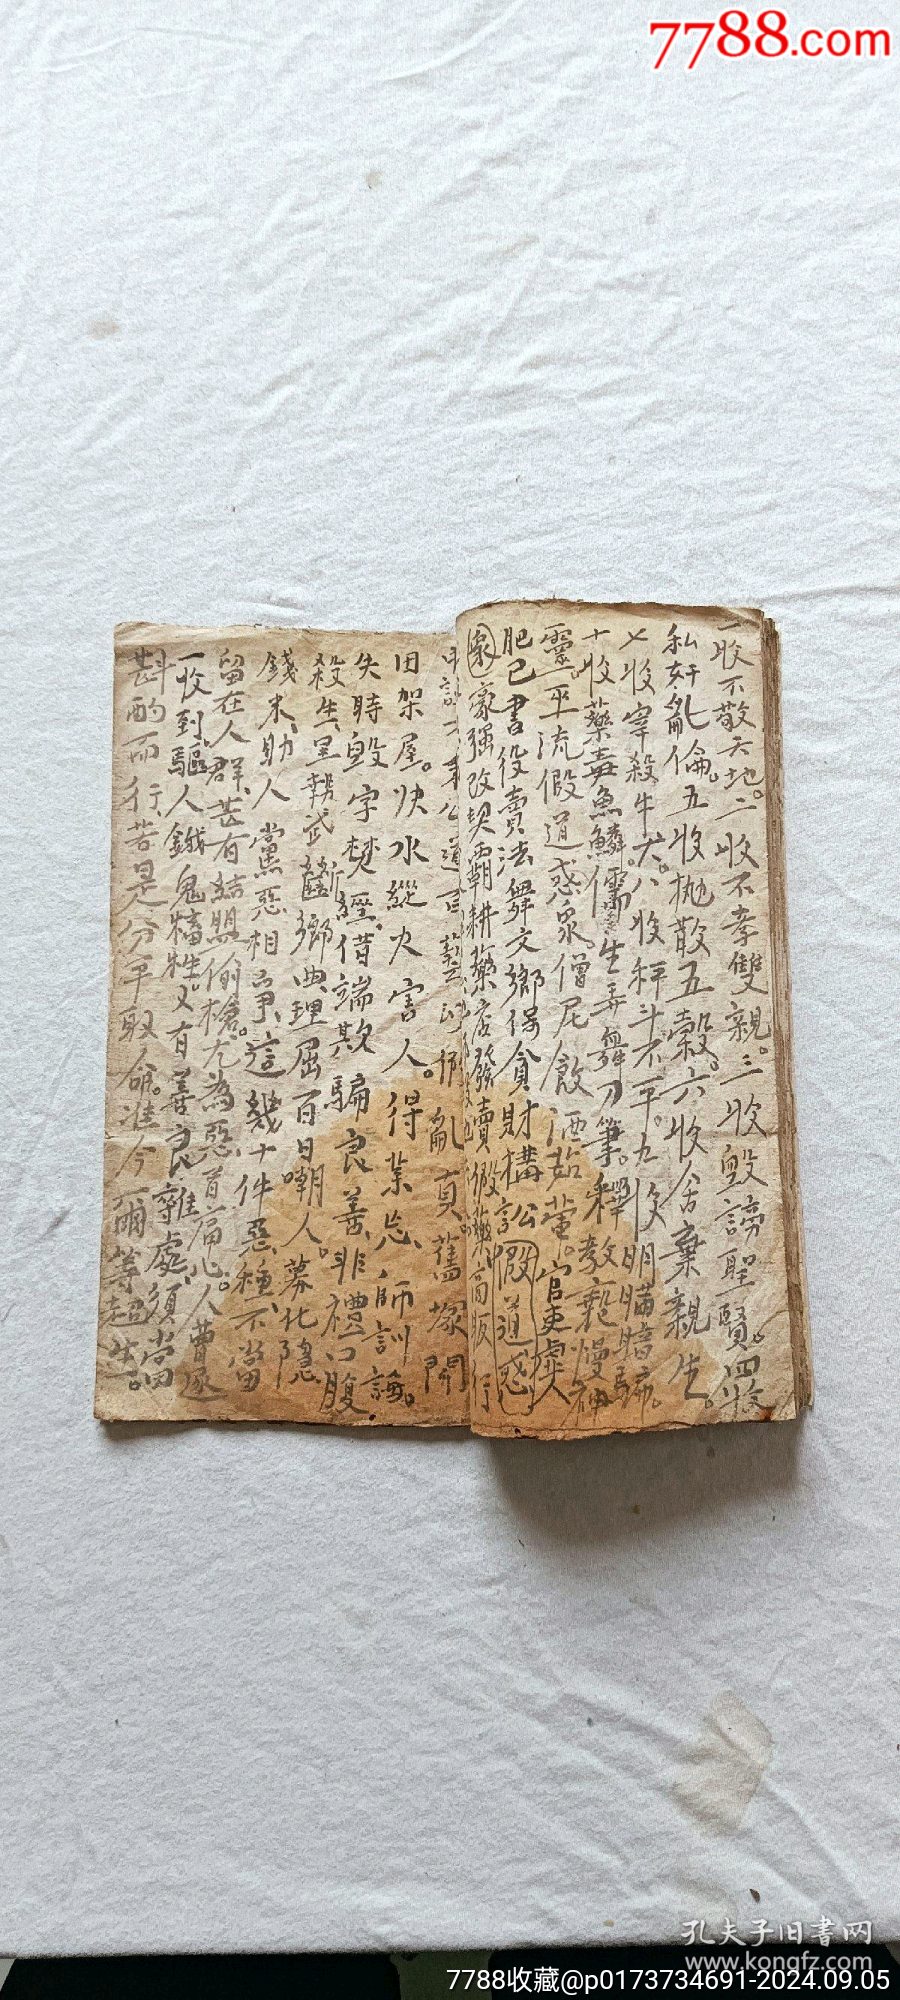 7788.com
一收不敬天地。二收不孝雙親。三收毀謗聖賢。四收
私奸亂倫。五收拋散五穀。六收舍棄親生。
七收宰殺牛犬。八收秤斗不平。九收明瞞暗騙。
十收藥毒魚鱗儒生弄舞刀筆。釋教褻慢神
靈。巫流假道惑眾。僧尼飲酒茹葷。官吏虐人
肥己書役賣法舞文鄉保貪財構訟假道惑
眾豪强改契霸耕藥店發賣假藥商販行
田架屋。決水縱火害人。得業忘師訓誨。
失時毀字焚經借端欺騙良善非禮口腹
殺生里鄉典理屈百日嘲人。募化隱
錢米、助人黨惡相爭這幾十件惡種、不當
留在人群、若有結盟偷搶、為惡首屆心人曹逐
一收到驅人餓鬼牲。又有善良雜處、須當
斟酌而行、若是分平取命。准今爾等超生。
孔夫子旧書网
www.kongfz.com
7788收藏@p0173734691-2024.09.05